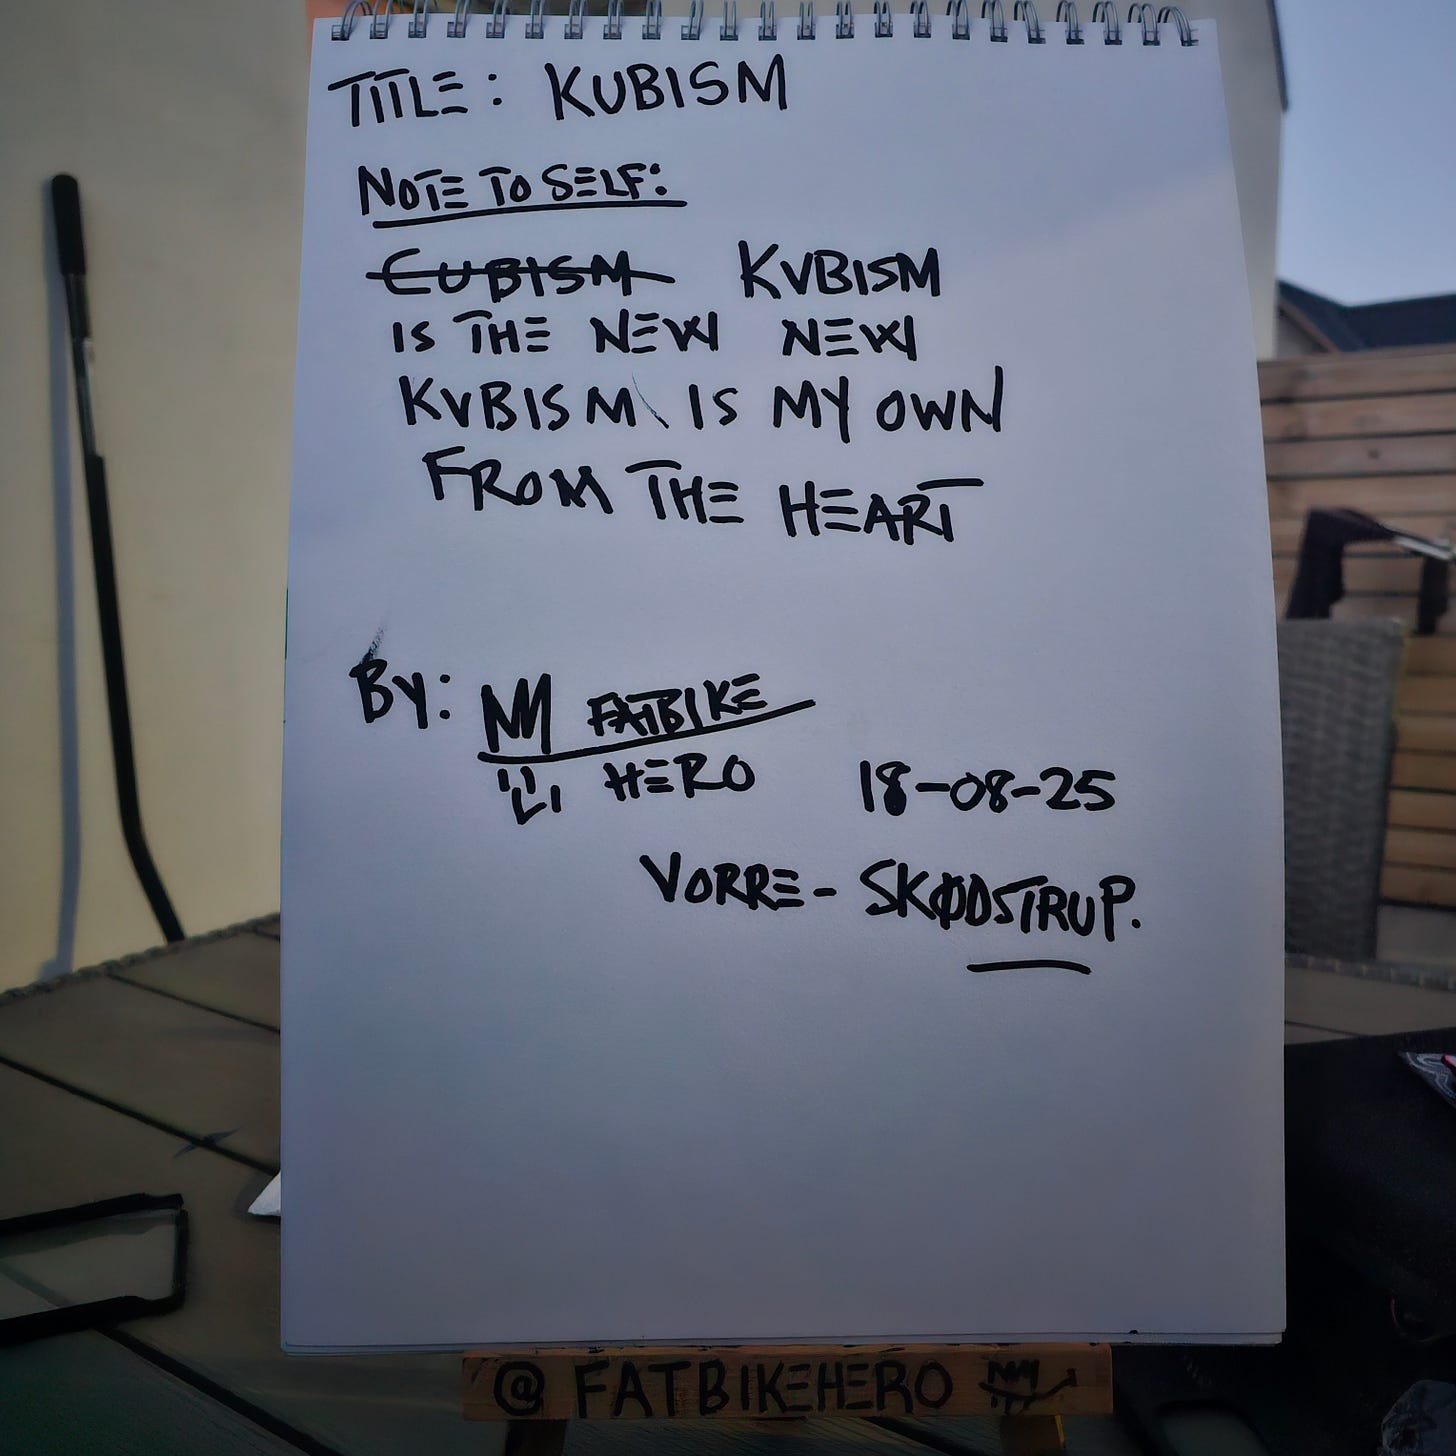 TITLE: KUBISM
NOTE TO SELF:
CUBISM KVBISM
IS THE NEW NEW
KVBISM IS MY OWN
FROM THE HEART
BY: FATBIKE
HERO 18-08-25
VORRE-SKØDSTRUP.
@FATBIKEHERO